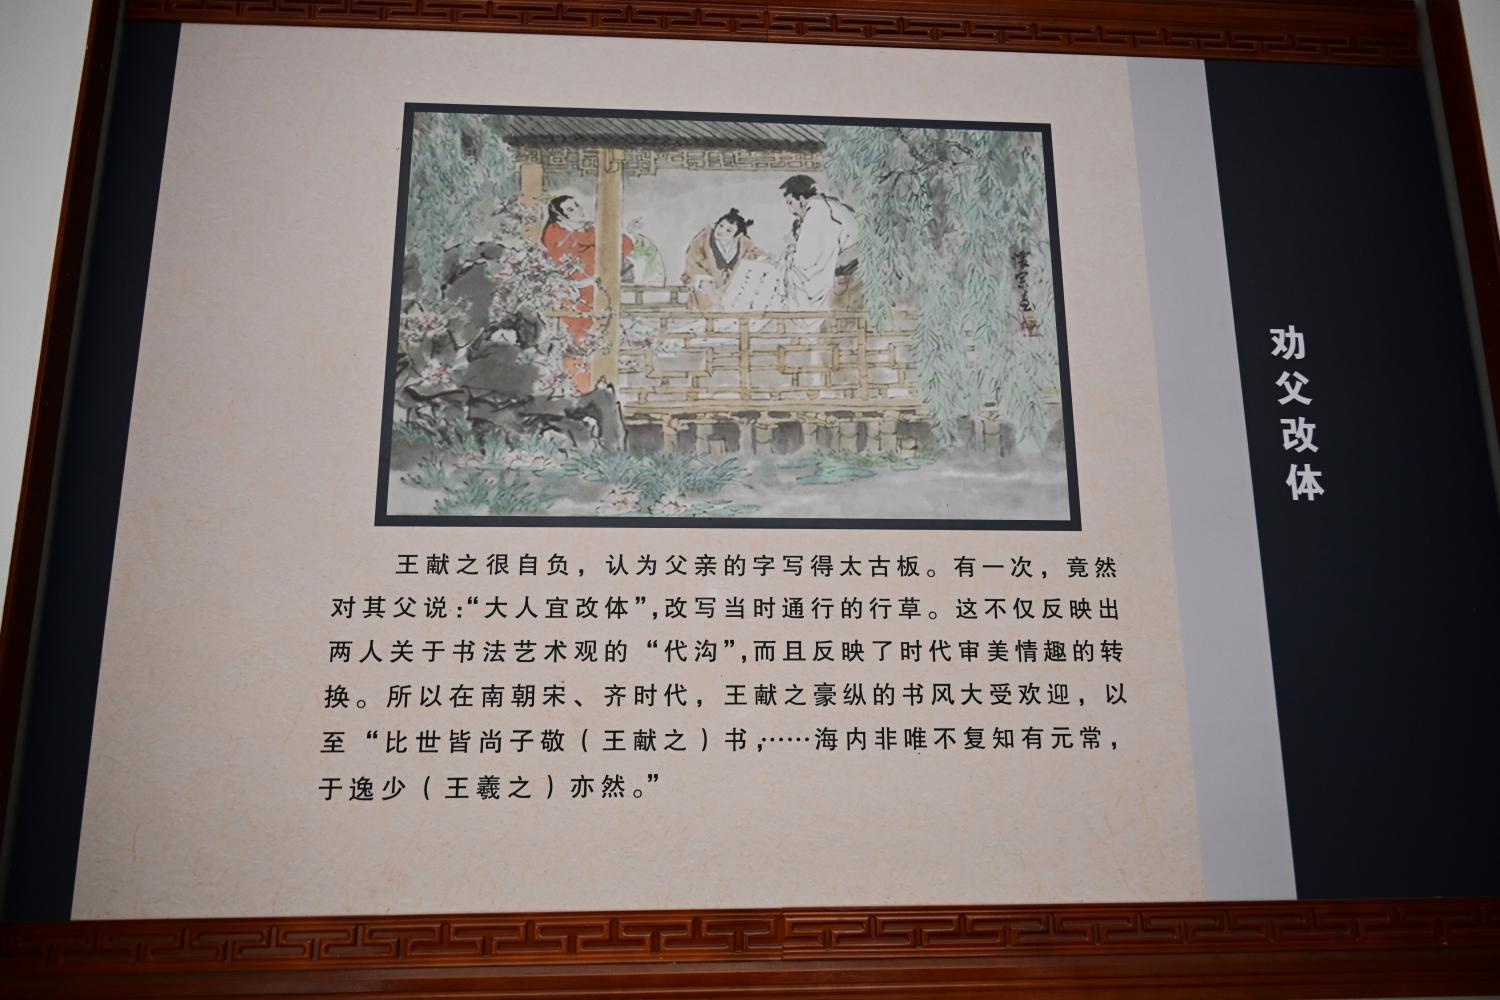 劝父改体
王献之很自负，认为父亲的字写得太古板。有一次，竟然
对其父说：“大人宜改体”，改写当时通行的行草。这不仅反映出
两人关于书法艺术观的“代沟”，而且反映了时代审美情趣的转
换。所以在南朝宋、齐时代，王献之豪纵的书风大受欢迎，以
至“比世皆尚子敬（王献之）书，……海内非唯不复知有元常，
于逸少（王羲之）亦然。”